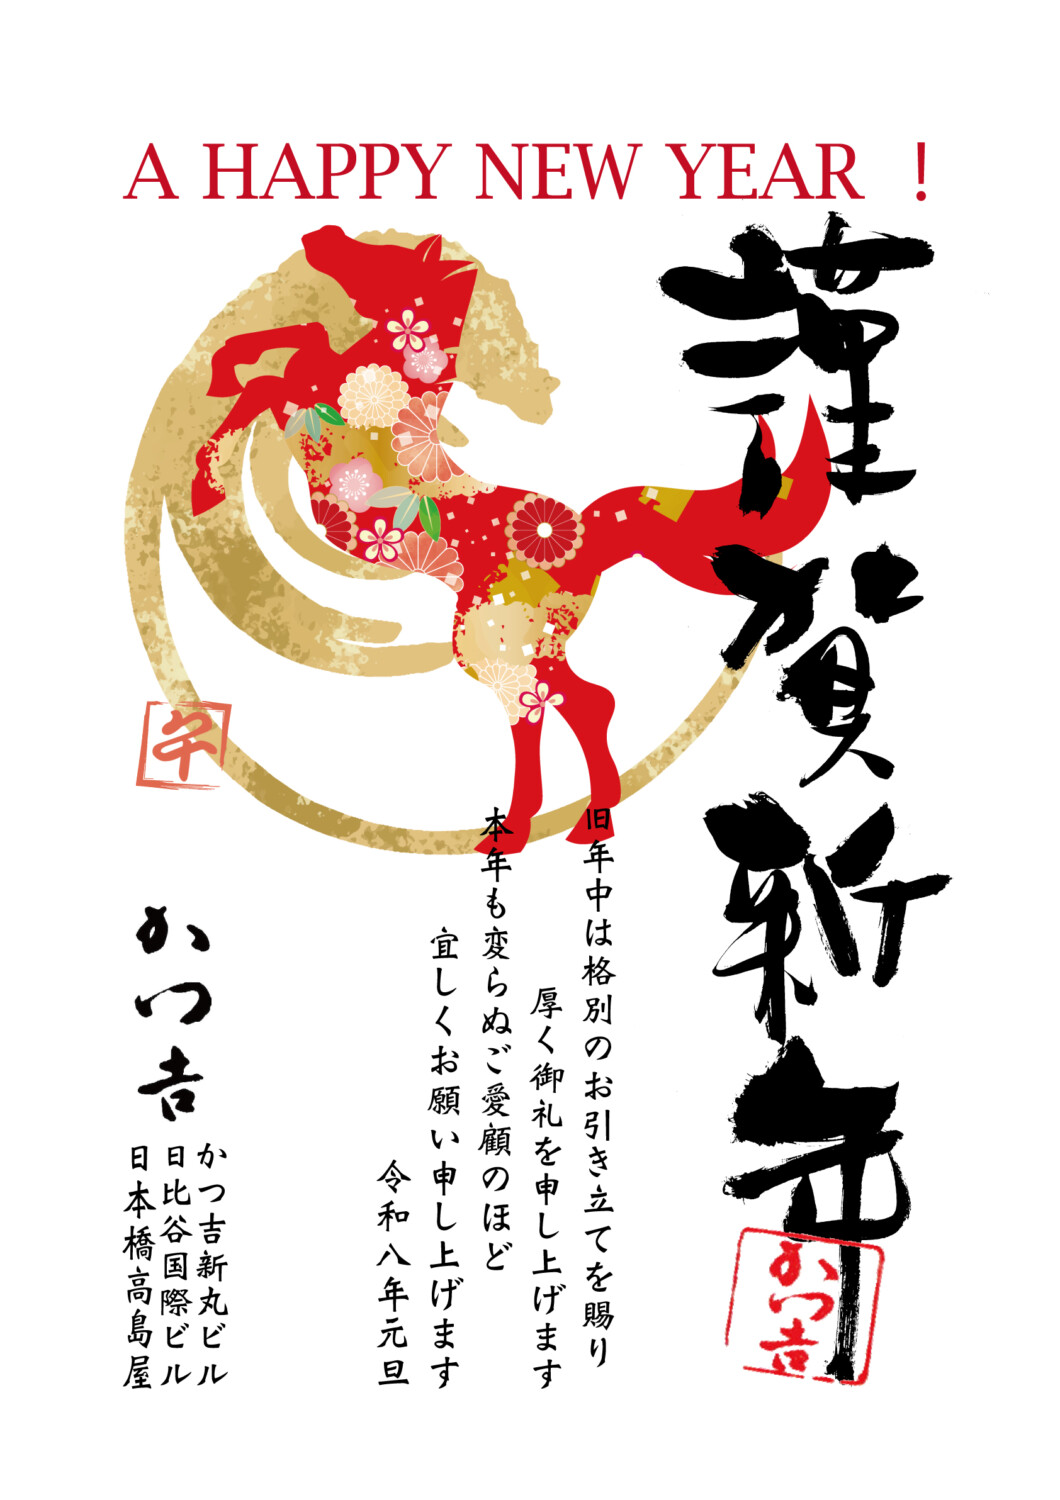 A HAPPY NEW YEAR !
謹賀新年
かつ吉
旧年中は格別のお引き立てを賜り
厚く御礼を申し上げます
本年も変らぬご愛顧のほど
宜しくお願い申し上げます
令和八年元旦
午
かつ吉
かつ吉新丸ビル
日比谷国際ビル
日本橋高島屋